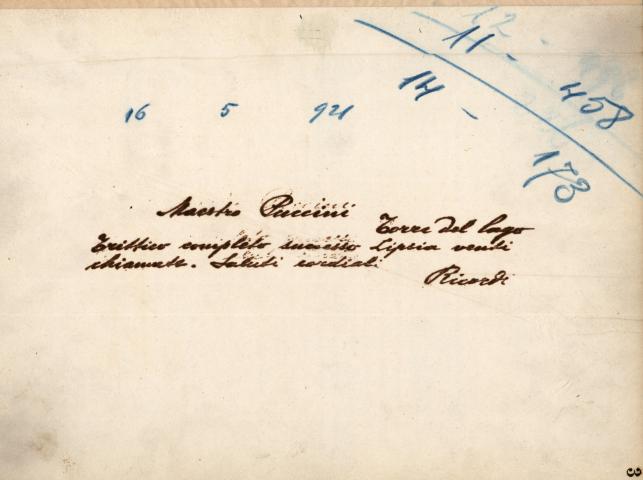 12 -
11 - 458
14 - 173
16 5 921
Maestro Puccini
Torre del Lago
Trittico completo successo Lipsia venti
chiamate. Saluti cordiali
Ricordi
3